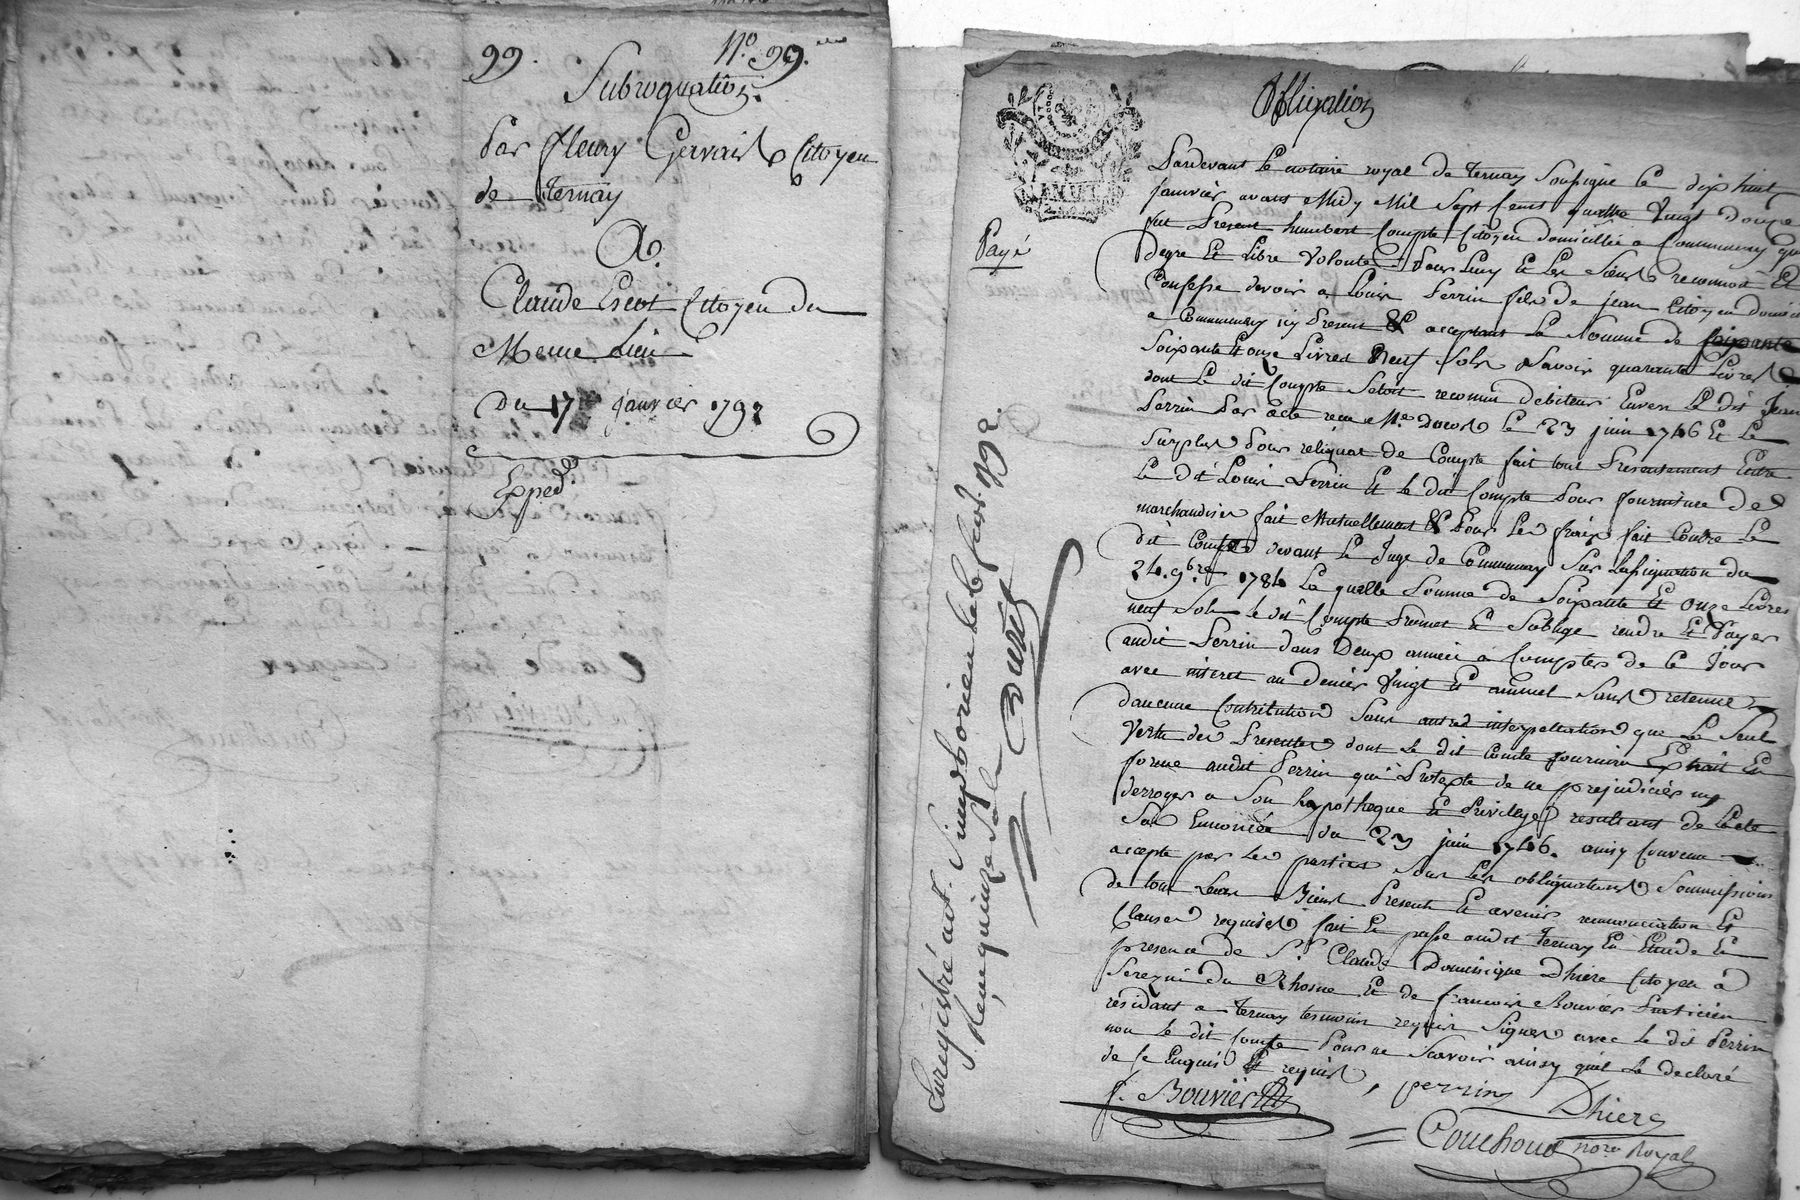 99. No. 99.
Subroguation.
par fleury Gervais Citoyen
de Ternay
A.
Claude Escot Citoyen du
Meme Lieu
Du 17 janvier 1792
Exped.
Obligation
Payé
Pardevant Le notaire royal de Ternay Soussigne Le dix huit
janvier avant Midy Mil Sept Cent quattre Vingt douze
fut Present humbert Compte Citoyen domicillié a Communay qui
degre Et Libre Volonté pour Luy Et Les Siens reconnoit Et
Confesse devoir a Louis Perrin fils de jean Citoyen
a Communay icy Present Et acceptant La Somme de soixante
Soixante Et onze Livres Neuf Sols Savoir quarante Livres
dont Le dit Compte Setoit reconnu debiteur Enver Le dit Jean
Perrin Par acte recu Me. Le 23 juin 1746 Et Le
Surplus Pour reliquat de Compte fait tout Presentement Entre
Le dit Louis Perrin Et le dit Compte Pour fourniture de
marchandises fait Mutuellement Et Pour Les fraix fait Contre Le
dit Compte devant Le Juge de Communay Sur Lassignation du
24. 9bre 1784 La quelle Somme de Soixante Et Onze Livres
neuf Sols le dit Compte Promet Et Soblige rendre Et Payer
audit Perrin dans Deux années à Compter de Ce Jour
avec interet au denier Vingt Et annuel Sans retenue
daucune Contribution Sans autre interpellation que Le Seul
Vertu des Presentes dont Le dit Comte fournira Extrait En
forme audit Perrin qui Proteste de ne prejudicier ny
derroger a Son hypotheque Et Privilege resultant de Lacte
Sus Ennoncée du 23 juin 1746. ainsy Convenu
accepte par Les parties Sous Les obligations Soummissions
de tout Leurs Biens Present Et avenir renonciation Et
Clauses requises fait Et passe audit Ternay En Etude En
presence de Sr. Claude Dominique Dhiere Citoyen à
Serezin du Rhosne Et de francois Bouvier Praticien
residant a Ternay temoins requis Signes avec le dit Perrin
non le dit Comte Pour ne Scavoir ainsy quil La declaré
de Ce Enquis Et requis
f. Bouvier perrin Dhiere
Couchoud nore. Royal
Enregistré a St. Simphorien le 6 fevr. 1792.
Reçu quinze Sols